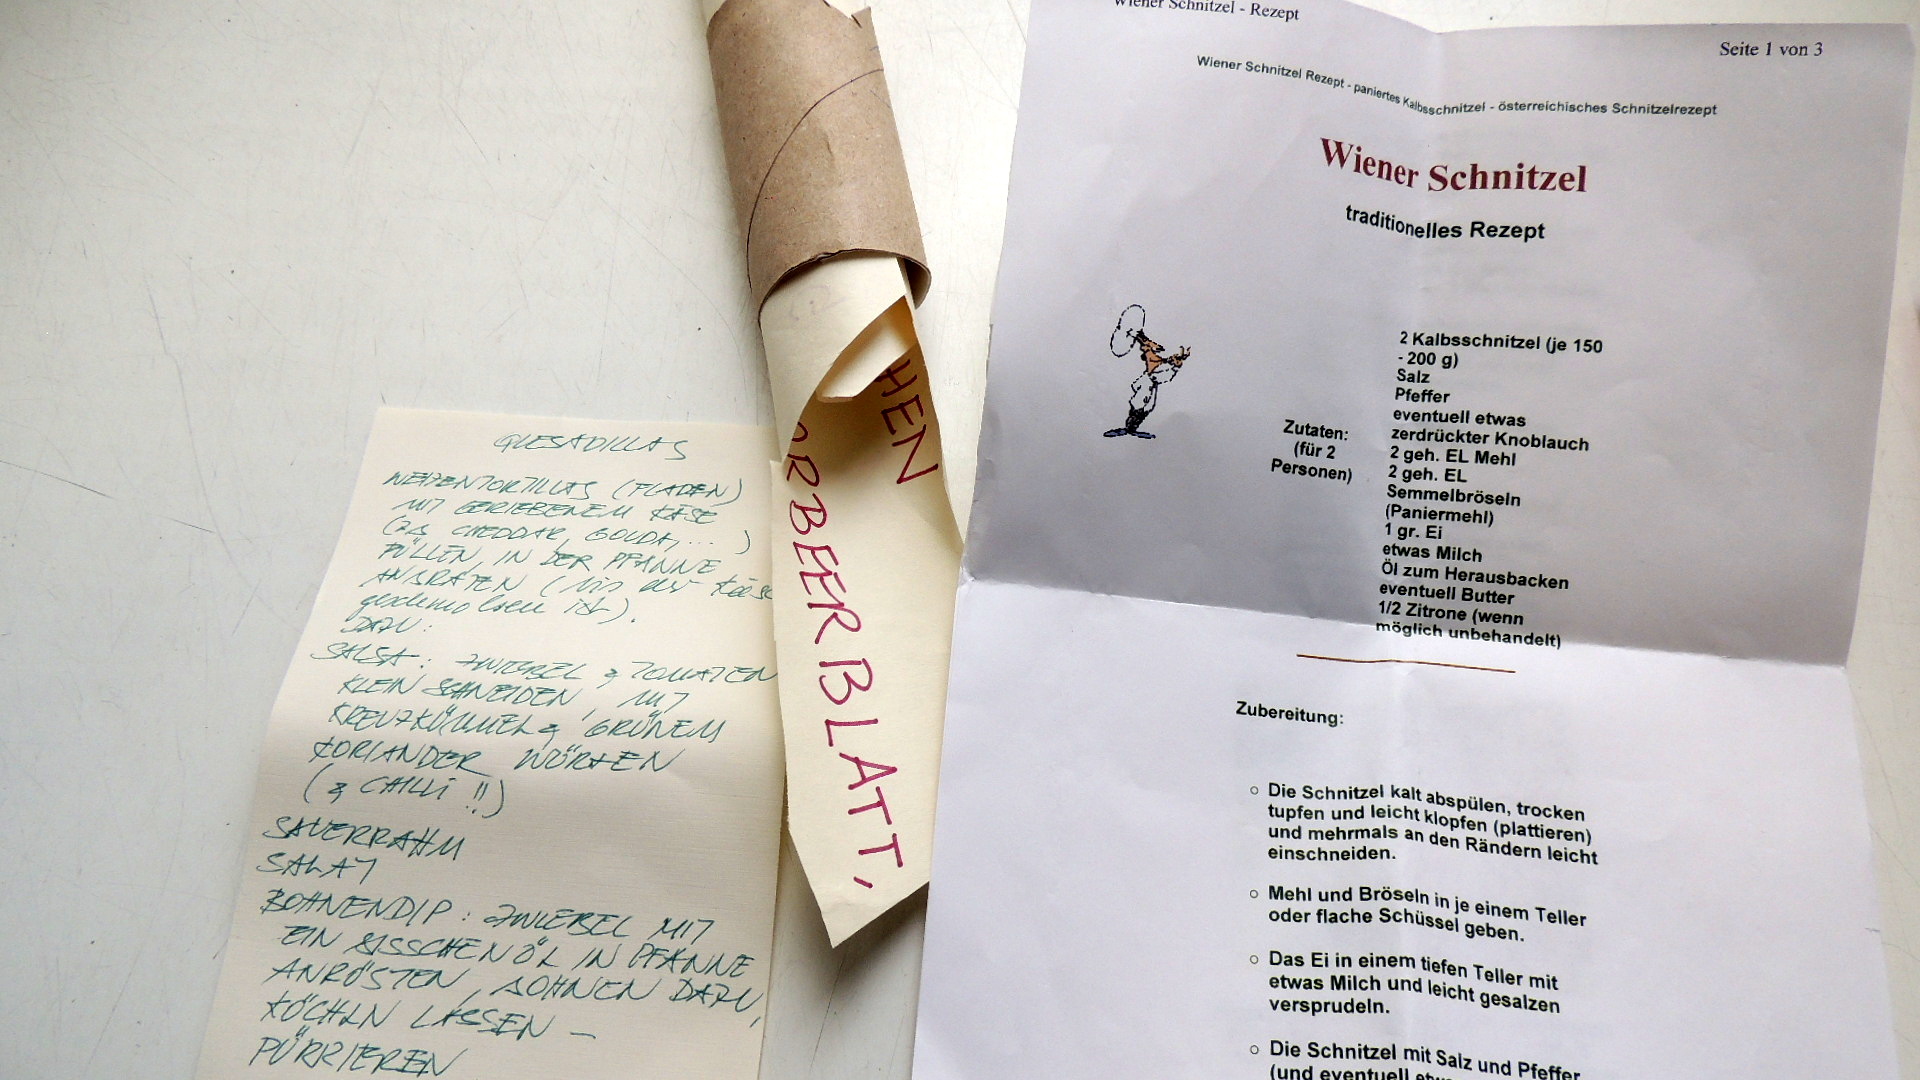 QUESADILLAS
WEIZENTORTILLAS (FLADEN)
MIT GERIEBENEM KÄSE
(ZB CHEDDAR, GOUDA, ... )
FÜLLEN, IN DER PFANNE
ANBRATEN (bis der Käse
geschmolzen ist).
DAZU:
SALSA: ZWIEBEL & TOMATEN
KLEIN SCHNEIDEN, MIT
KREUZKÜMMEL & GRÜNEM
KORIANDER WÜRZEN
(& CHILLI !!)
SAUERRAHM
SALAT
BOHNENDIP: ZWIEBEL MIT
EIN BISSCHEN ÖL IN PFANNE
ANRÖSTEN, BOHNEN DAZU,
KÖCHLN LASSEN –
PÜRRIEREN
HEN
ORBEERBLATT,
Wiener Schnitzel - Rezept
Seite 1 von 3
Wiener Schnitzel Rezept - paniertes Kalbsschnitzel - österreichisches Schnitzelrezept
Wiener Schnitzel
traditionelles Rezept
Zutaten:
(für 2
Personen)
2 Kalbsschnitzel (je 150
- 200 g)
Salz
Pfeffer
eventuell etwas
zerdrückter Knoblauch
2 geh. EL Mehl
2 geh. EL
Semmelbröseln
(Paniermehl)
1 gr. Ei
etwas Milch
Öl zum Herausbacken
eventuell Butter
1/2 Zitrone (wenn
möglich unbehandelt)
Zubereitung:
Die Schnitzel kalt abspülen, trocken
tupfen und leicht klopfen (plattieren)
und mehrmals an den Rändern leicht
einschneiden.
Mehl und Bröseln in je einem Teller
oder flache Schüssel geben.
Das Ei in einem tiefen Teller mit
etwas Milch und leicht gesalzen
versprudeln.
Die Schnitzel mit Salz und Pfeffer
(und eventuell